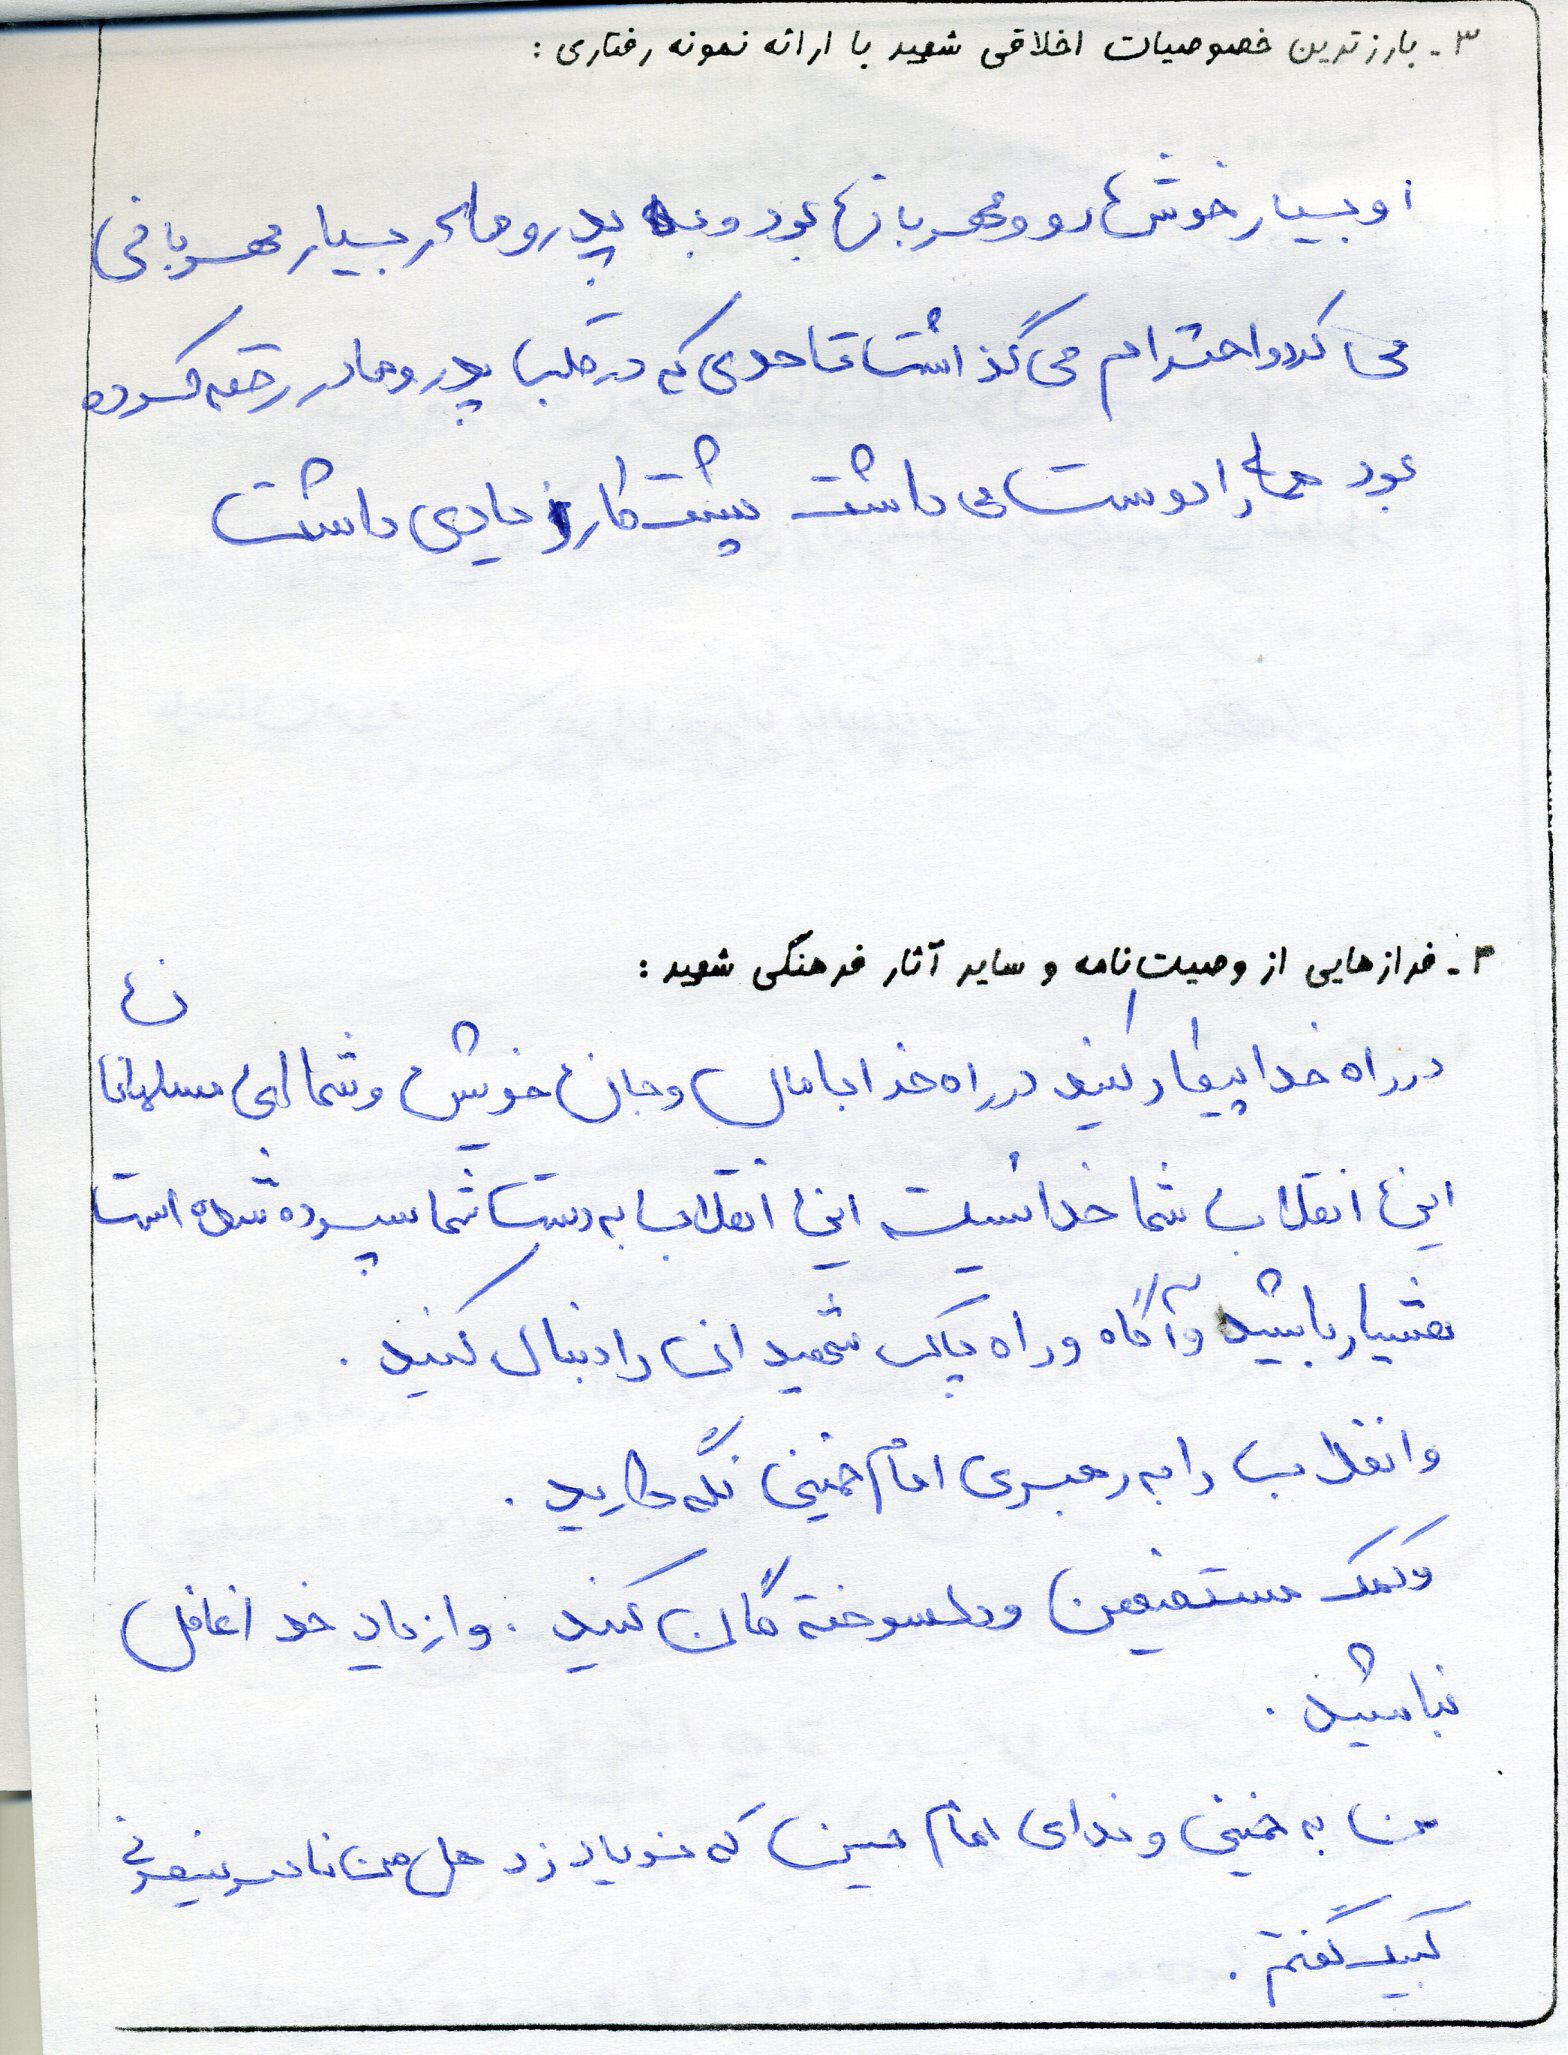 ۳- بارزترین خصوصیات اخلاقی شهید با ارائه نمونه رفتاری :
او بسیار خوش رو و مهربان بود و به پدر و مادر بسیار مهربانی
می کرد و احترام می گذاشت تا حدی که در قلب پدر و مادر رخنه کرده
بود همه را دوست می داشت پشت کار زیادی داشت
۴- فرازهایی از وصیت‌نامه و سایر آثار فرهنگی شهید :
در راه خدا پیکار کنید در راه خدا با مال و جان خویش و شما ای مسلمانان
این انقلاب شما خدائیست این انقلاب به دست شما سپرده شده است
هشیار باشید و آگاه و راه پاک شهیدان را دنبال کنید .
و انقلاب را به رهبری امام خمینی نگه دارید .
و کمک مستضعفین و دلسوخته گان کنید . و از یاد خدا غافل
نباشید .
من به خمینی و ندای امام حسین که فریاد زد هل من ناصر ینصرنی
لبیک گفتم .